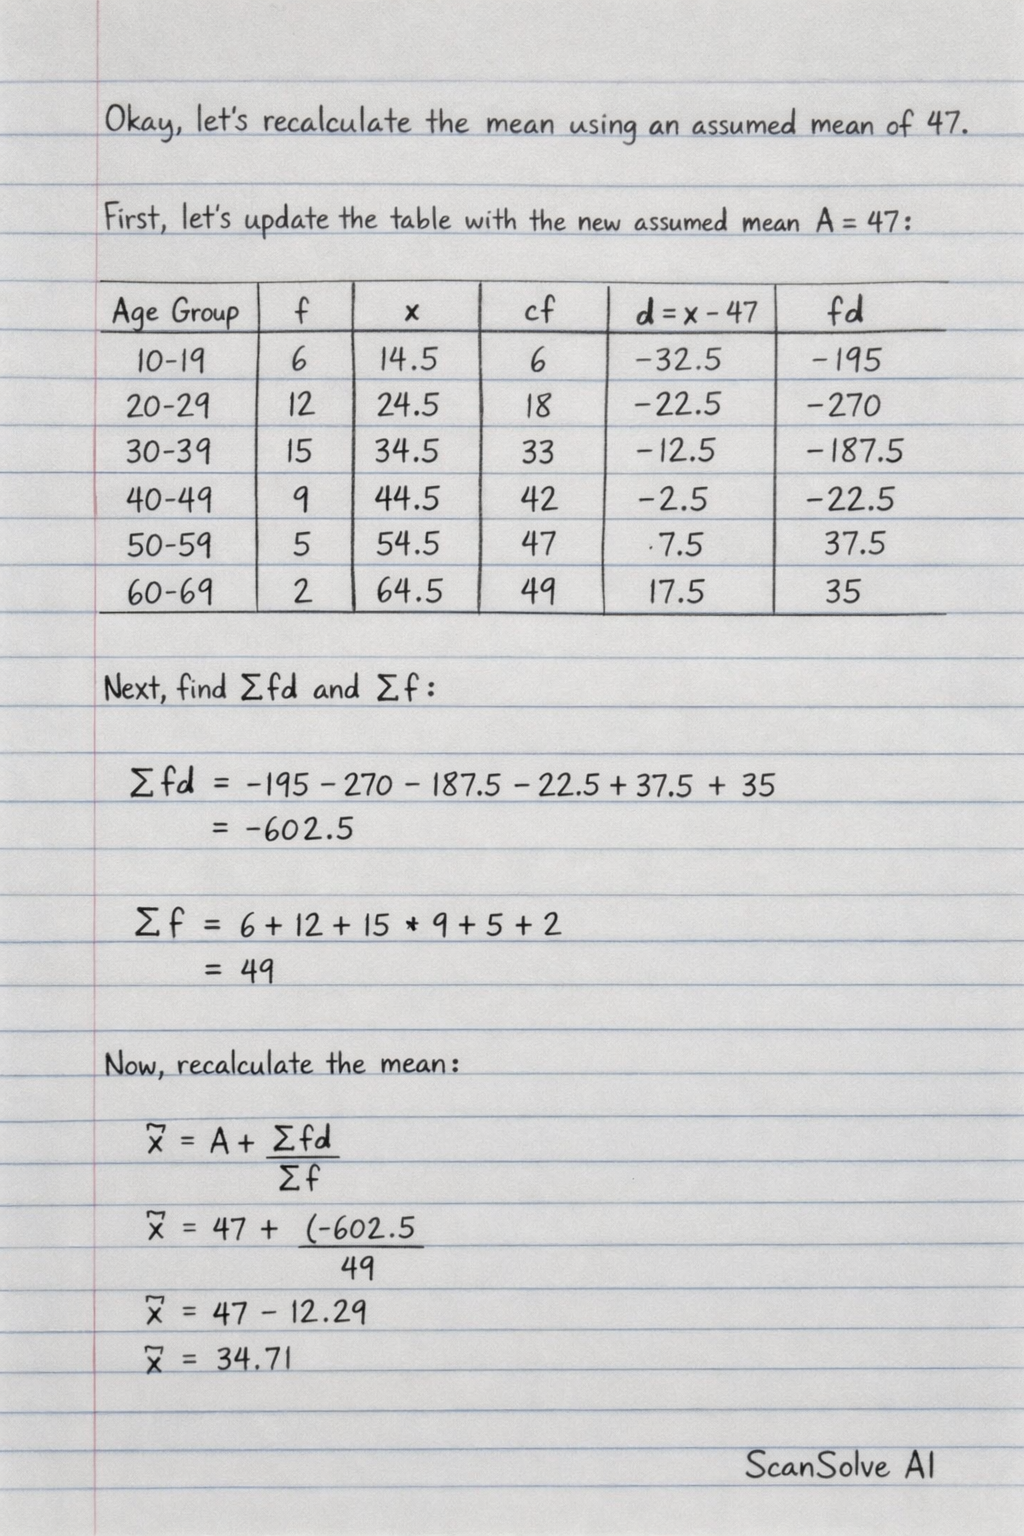 Okay, let's recalculate the mean using an assumed mean of 47.
First, let's update the table with the new assumed mean A = 47:
Age Group f x cf d = x - 47 fd
10-19 6 14.5 6 -32.5 -195
20-29 12 24.5 18 -22.5 -270
30-39 15 34.5 33 -12.5 -187.5
40-49 9 44.5 42 -2.5 -22.5
50-59 5 54.5 47 7.5 37.5
60-69 2 64.5 49 17.5 35
Next, find Σfd and Σf:
Σfd = -195 - 270 - 187.5 - 22.5 + 37.5 + 35
= -602.5
Σf = 6 + 12 + 15 * 9 + 5 + 2
= 49
Now, recalculate the mean:
x̄ = A + Σfd
Σf
x̄ = 47 + (-602.5
49
x̄ = 47 - 12.29
x̄ = 34.71
ScanSolve AI